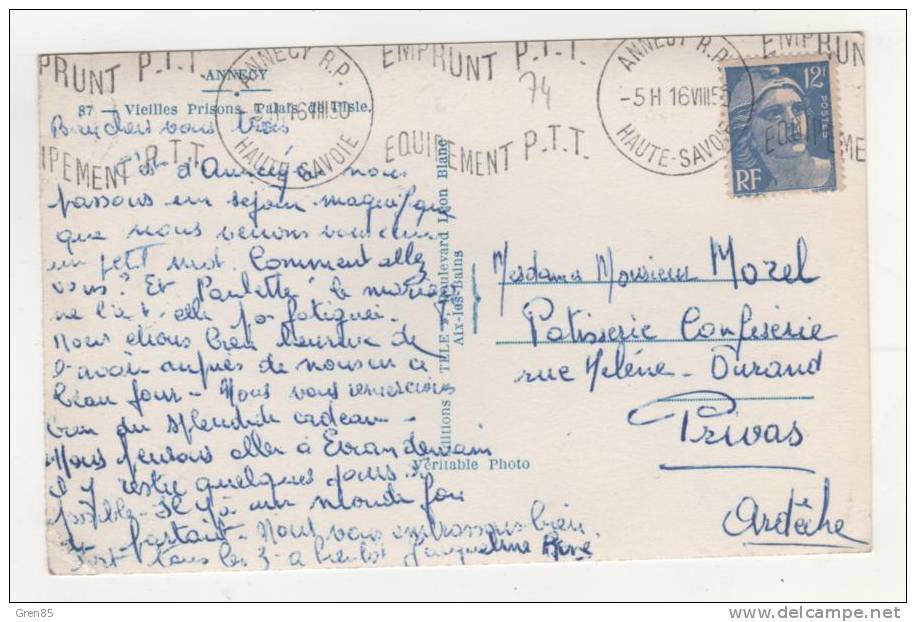 ANNECY
87 — Vieilles Prisons. Palais de l'Isle.
EMPRUNT P.T.T.
EQUIPEMENT P.T.T.
ANNECY R.P.
16 VIII 50
HAUTE-SAVOIE
EMPRUNT P.T.T.
74
EQUIPEMENT P.T.T.
ANNECY R.P.
-5H 16 VIII 50
HAUTE-SAVOIE
EMPRUN
EQUIPEME
12F
POSTES
RF
vous trois
C'est d'Annecy où nous
passons un séjour magnifique
que nous venons vous
un petit mot. Comment allez
vous? Et Paulette le mariage
ne l'a t-elle pas fatiguée.
Nous étions bien heureux de
l'avoir auprès de nous en ce
beau jour - Nous vous remercions
bien du splendide cadeau -
Nous pensons aller à Evian demain
et y rester quelques jours si
possible - Il y a un monde fou
partout - Nous vous embrassons bien
fort tous les 3 - à bientôt Jacqueline
Editions TELE Boulevard Léon Blanc
Aix-les-Bains
Véritable Photo
Mesdame Monsieur Morel
Patisserie Confiserie
rue Helène - Durand
Privas
Ardèche
Gren85
www.delcampe.net